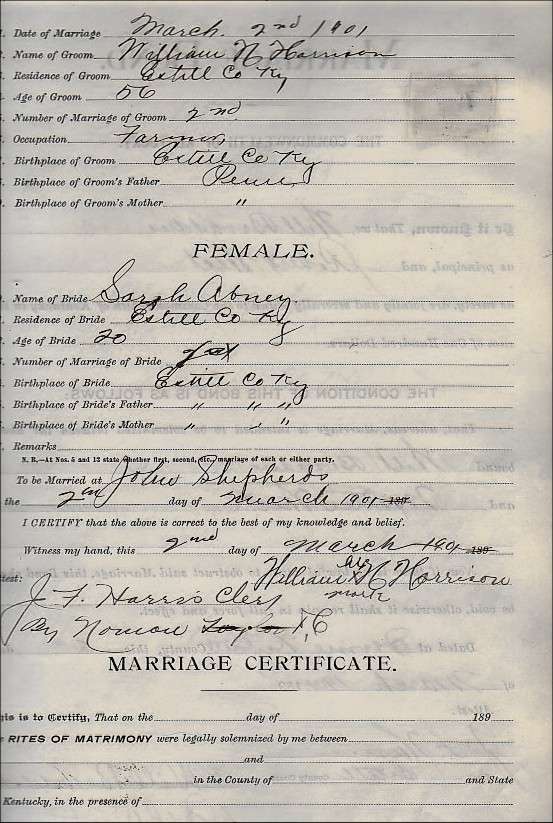 Date of Marriage March. 2nd 1901
Name of Groom William N Harrison
Residence of Groom Estill Co Ky
Age of Groom 56
Number of Marriage of Groom 2nd
Occupation Farmer
Birthplace of Groom Estill Co Ky
Birthplace of Groom's Father
Birthplace of Groom's Mother "
FEMALE.
Name of Bride Sarah Abney
Residence of Bride Estill Co Ky
Age of Bride 20
Number of Marriage of Bride
Birthplace of Bride Estill Co Ky
Birthplace of Bride's Father " " "
Birthplace of Bride's Mother " " "
Remarks
N. B.—At Nos. 5 and 12 state whether first, second, etc., marriage of each or either party.
To be Married at John Shepherds
the 2nd day of March 1901 189
I CERTIFY that the above is correct to the best of my knowledge and belief.
Witness my hand, this 2nd day of March 1901 189
William his N Harrison
mark
test:
J. F. Harris Clerk
By
MARRIAGE CERTIFICATE.
his is to Certify, That on the day of 189
RITES OF MATRIMONY were legally solemnized by me between
and
in the County of and State
Kentucky, in the presence of